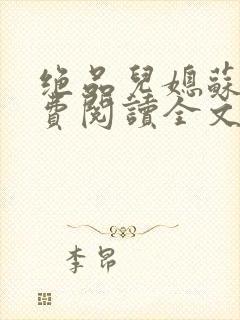 绝品兒媳蘇
費閱讀全文
李昂